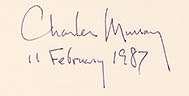 Charles Murray
11 February 1987